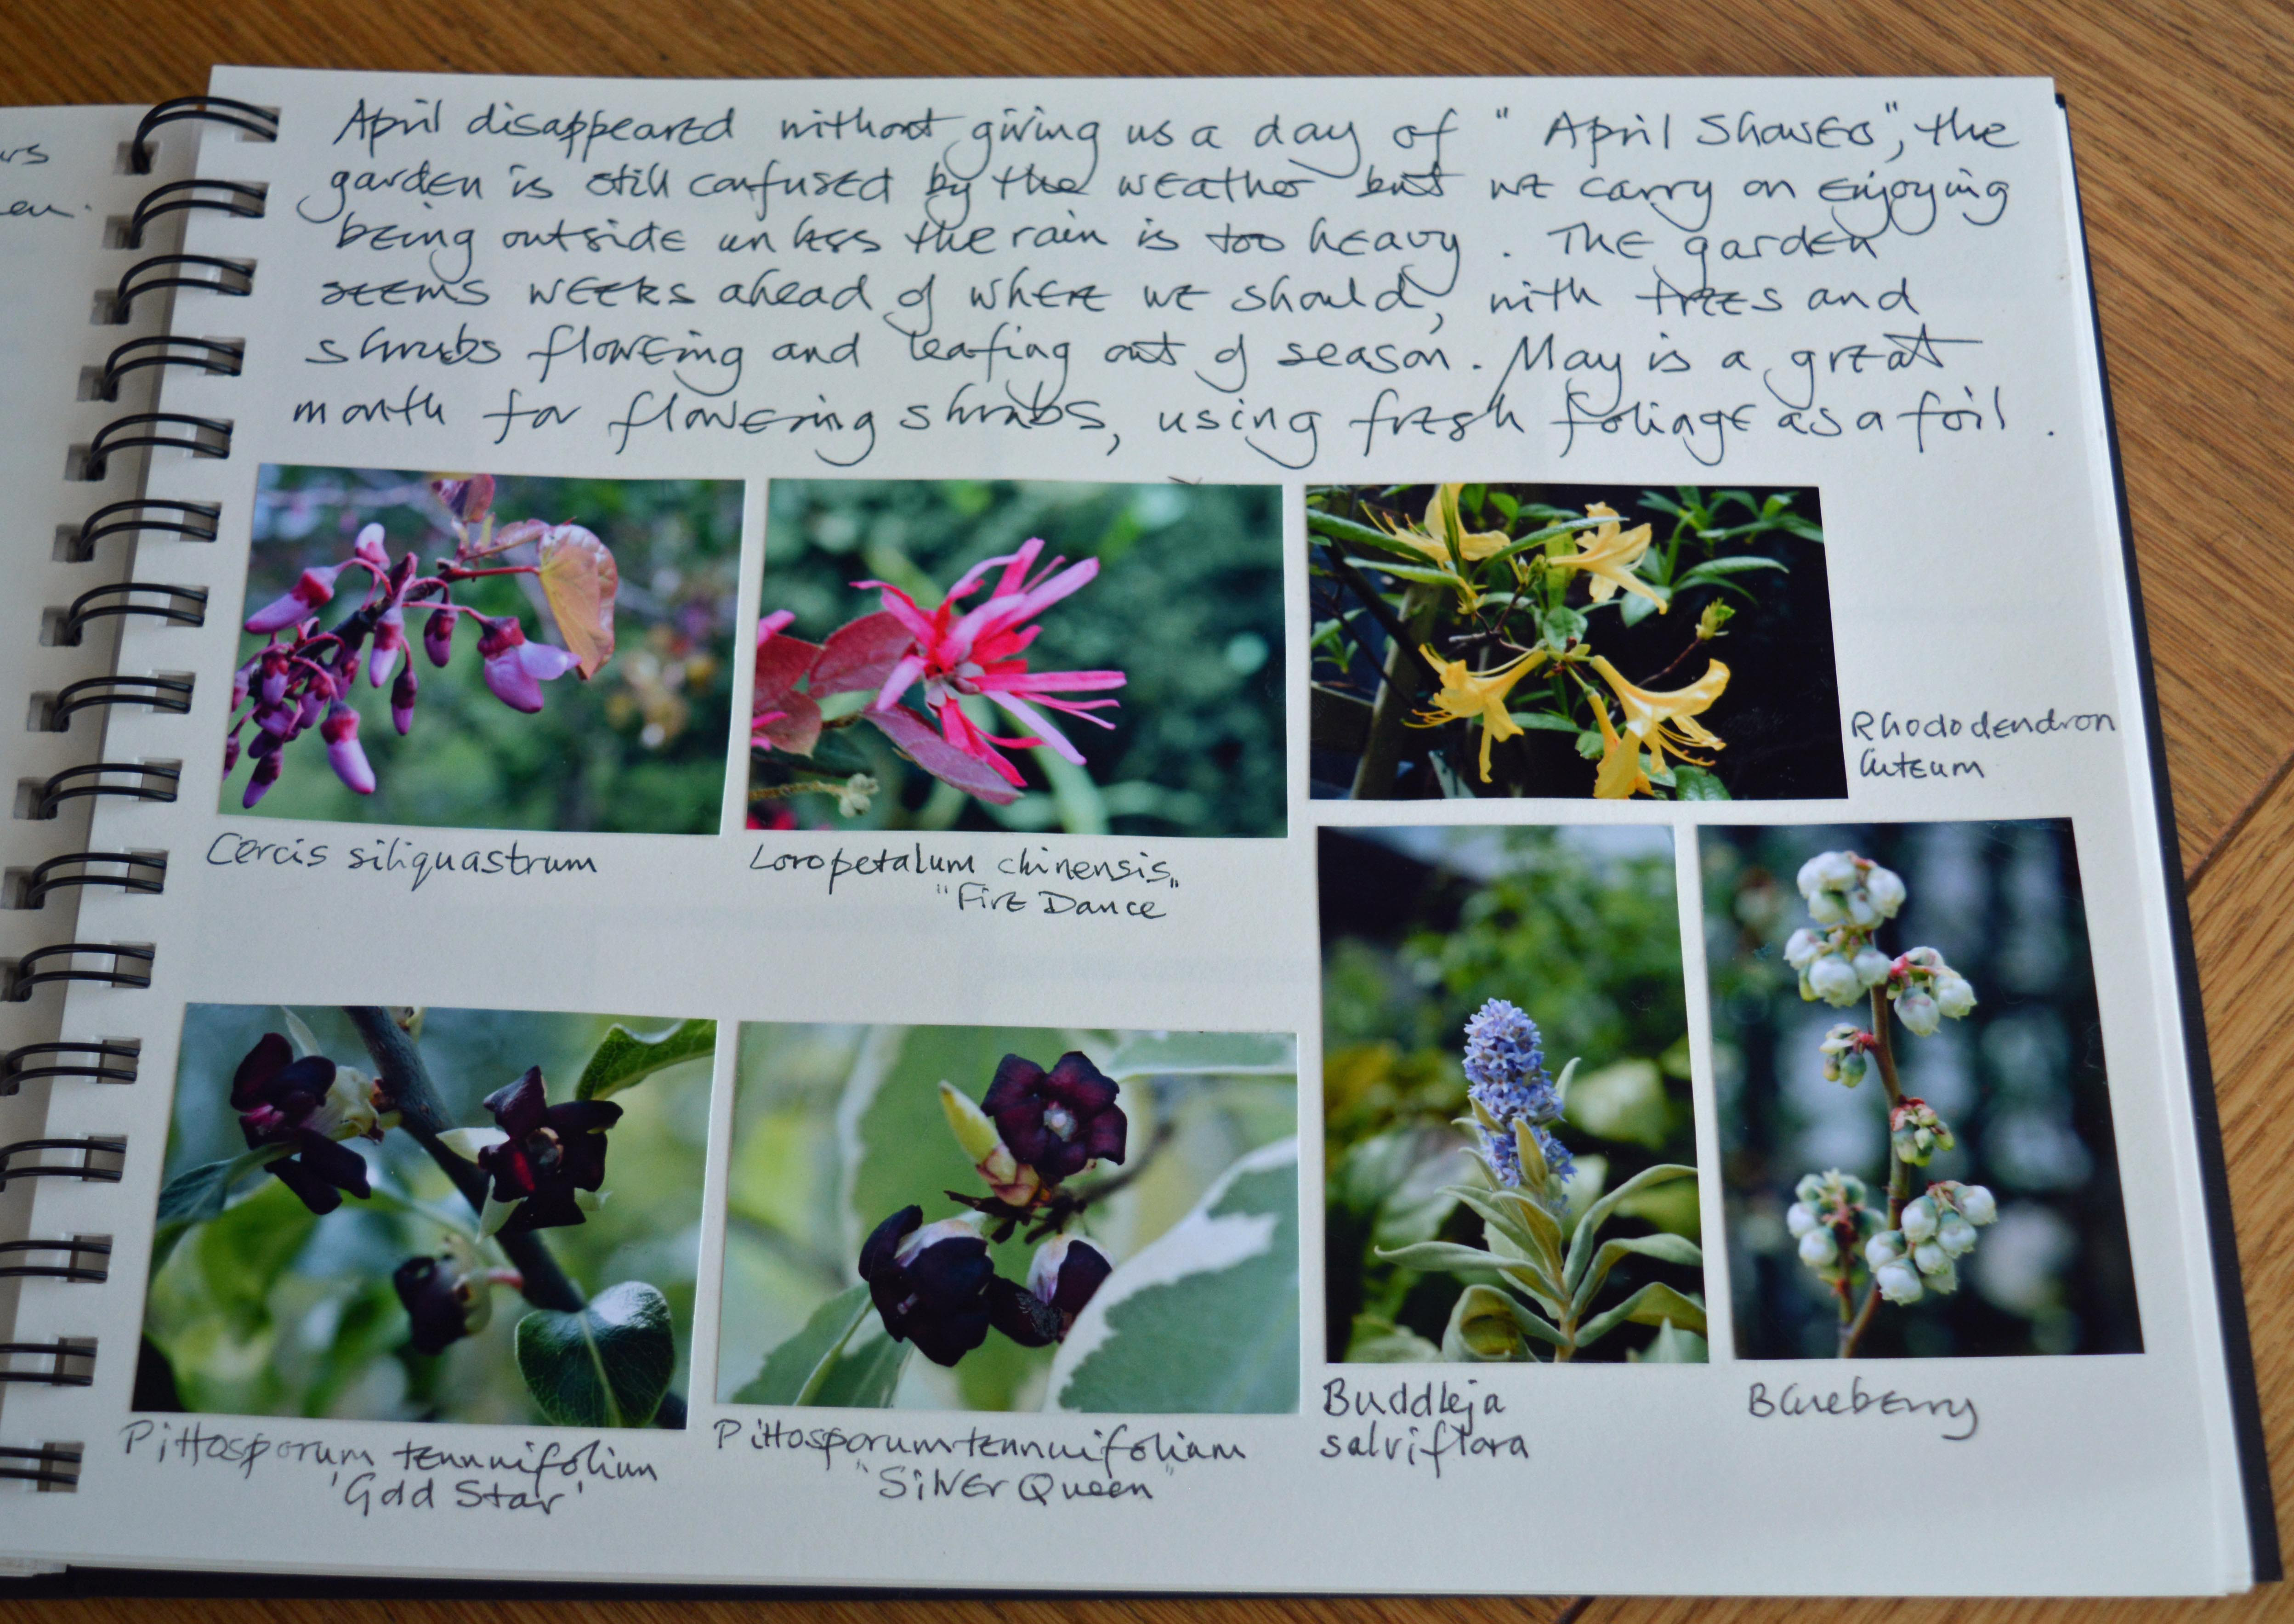 April disappeared without giving us a day of "April Showers", the
garden is still confused by the weather but we carry on enjoying
being outside unless the rain is too heavy. The garden
seems weeks ahead of where we should, with trees and
shrubs flowering and leafing out of season. May is a great
month for flowering shrubs, using fresh foliage as a foil.
Rhododendron
luteum
Cercis siliquastrum
Loropetalum chinensis
"Fire Dance"
Pittosporum tennuifolium
'Gold Star'
Pittosporum tennuifolium
"Silver Queen"
Buddleja
salviflora
Blueberry